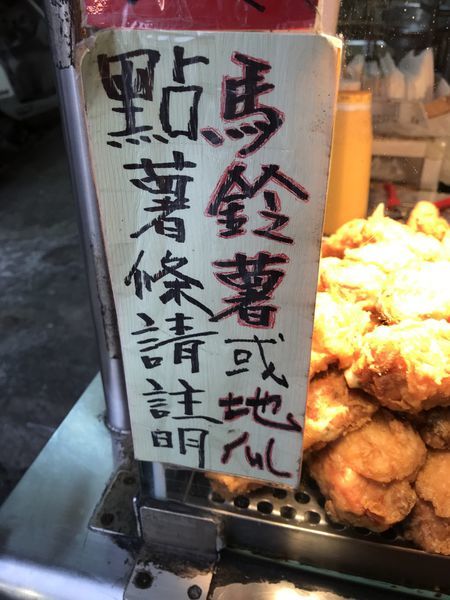 點薯條請註明
馬鈴薯或地瓜